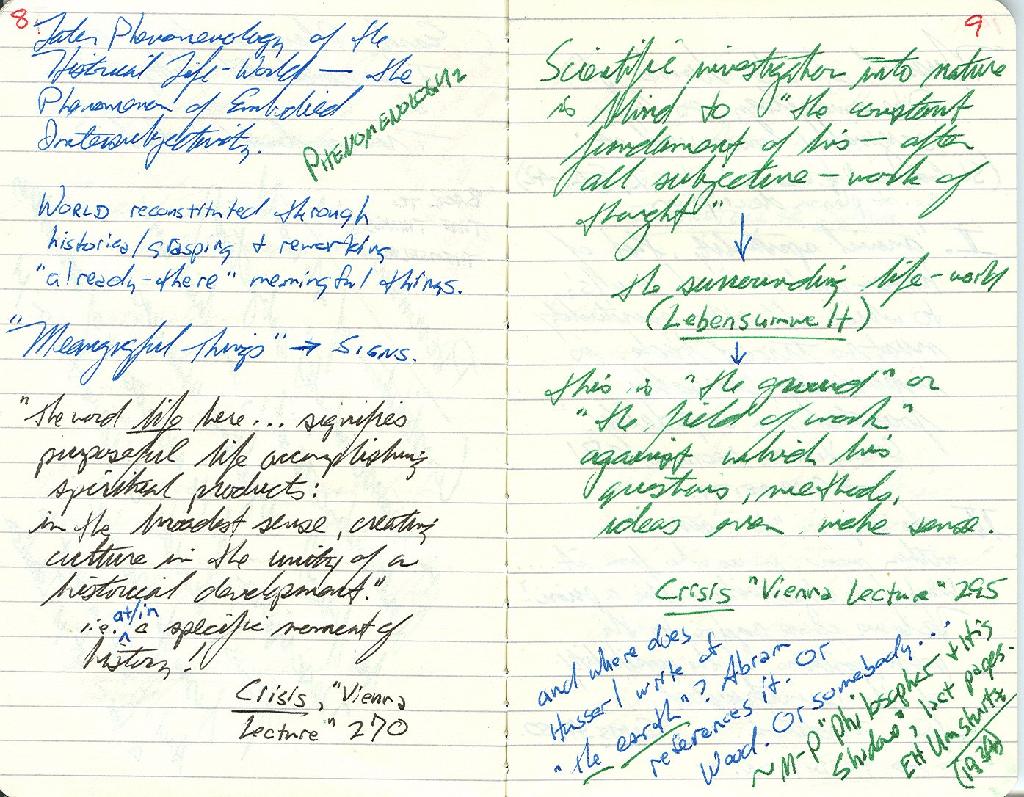 8
Later Phenomenology of the
Historical Life-World — the
Phenomenon of Embodied
Intersubjectivity.
PHENOMENOLOGY
WORLD reconstituted through
historical grasping + reworking
"already-there" meaningful things.
"Meaningful things" → SIGNS.
"the word life here... signifies
purposeful life accomplishing
spiritual products:
in the broadest sense, creating
culture in the unity of a
historical development."
i.e. at/in a specific moment of
history!
Crisis, "Vienna
Lecture" 270
9
Scientific investigation into nature
is blind to "the constant
fundament of his — after
all subjective — work of
thought"
↓
the surrounding life-world
(Lebensumwelt)
↓
this is "the ground" or
"the field of work"
against which his
questions, methods,
ideas even make sense.
Crisis "Vienna Lecture" 295
and where does
Husserl write of
"the earth"? Abram
references it. Or
Wood. Or somebody...
~ M-P "Philosopher + His
Shadow", last pages.
EH Umsturtz
(1934)